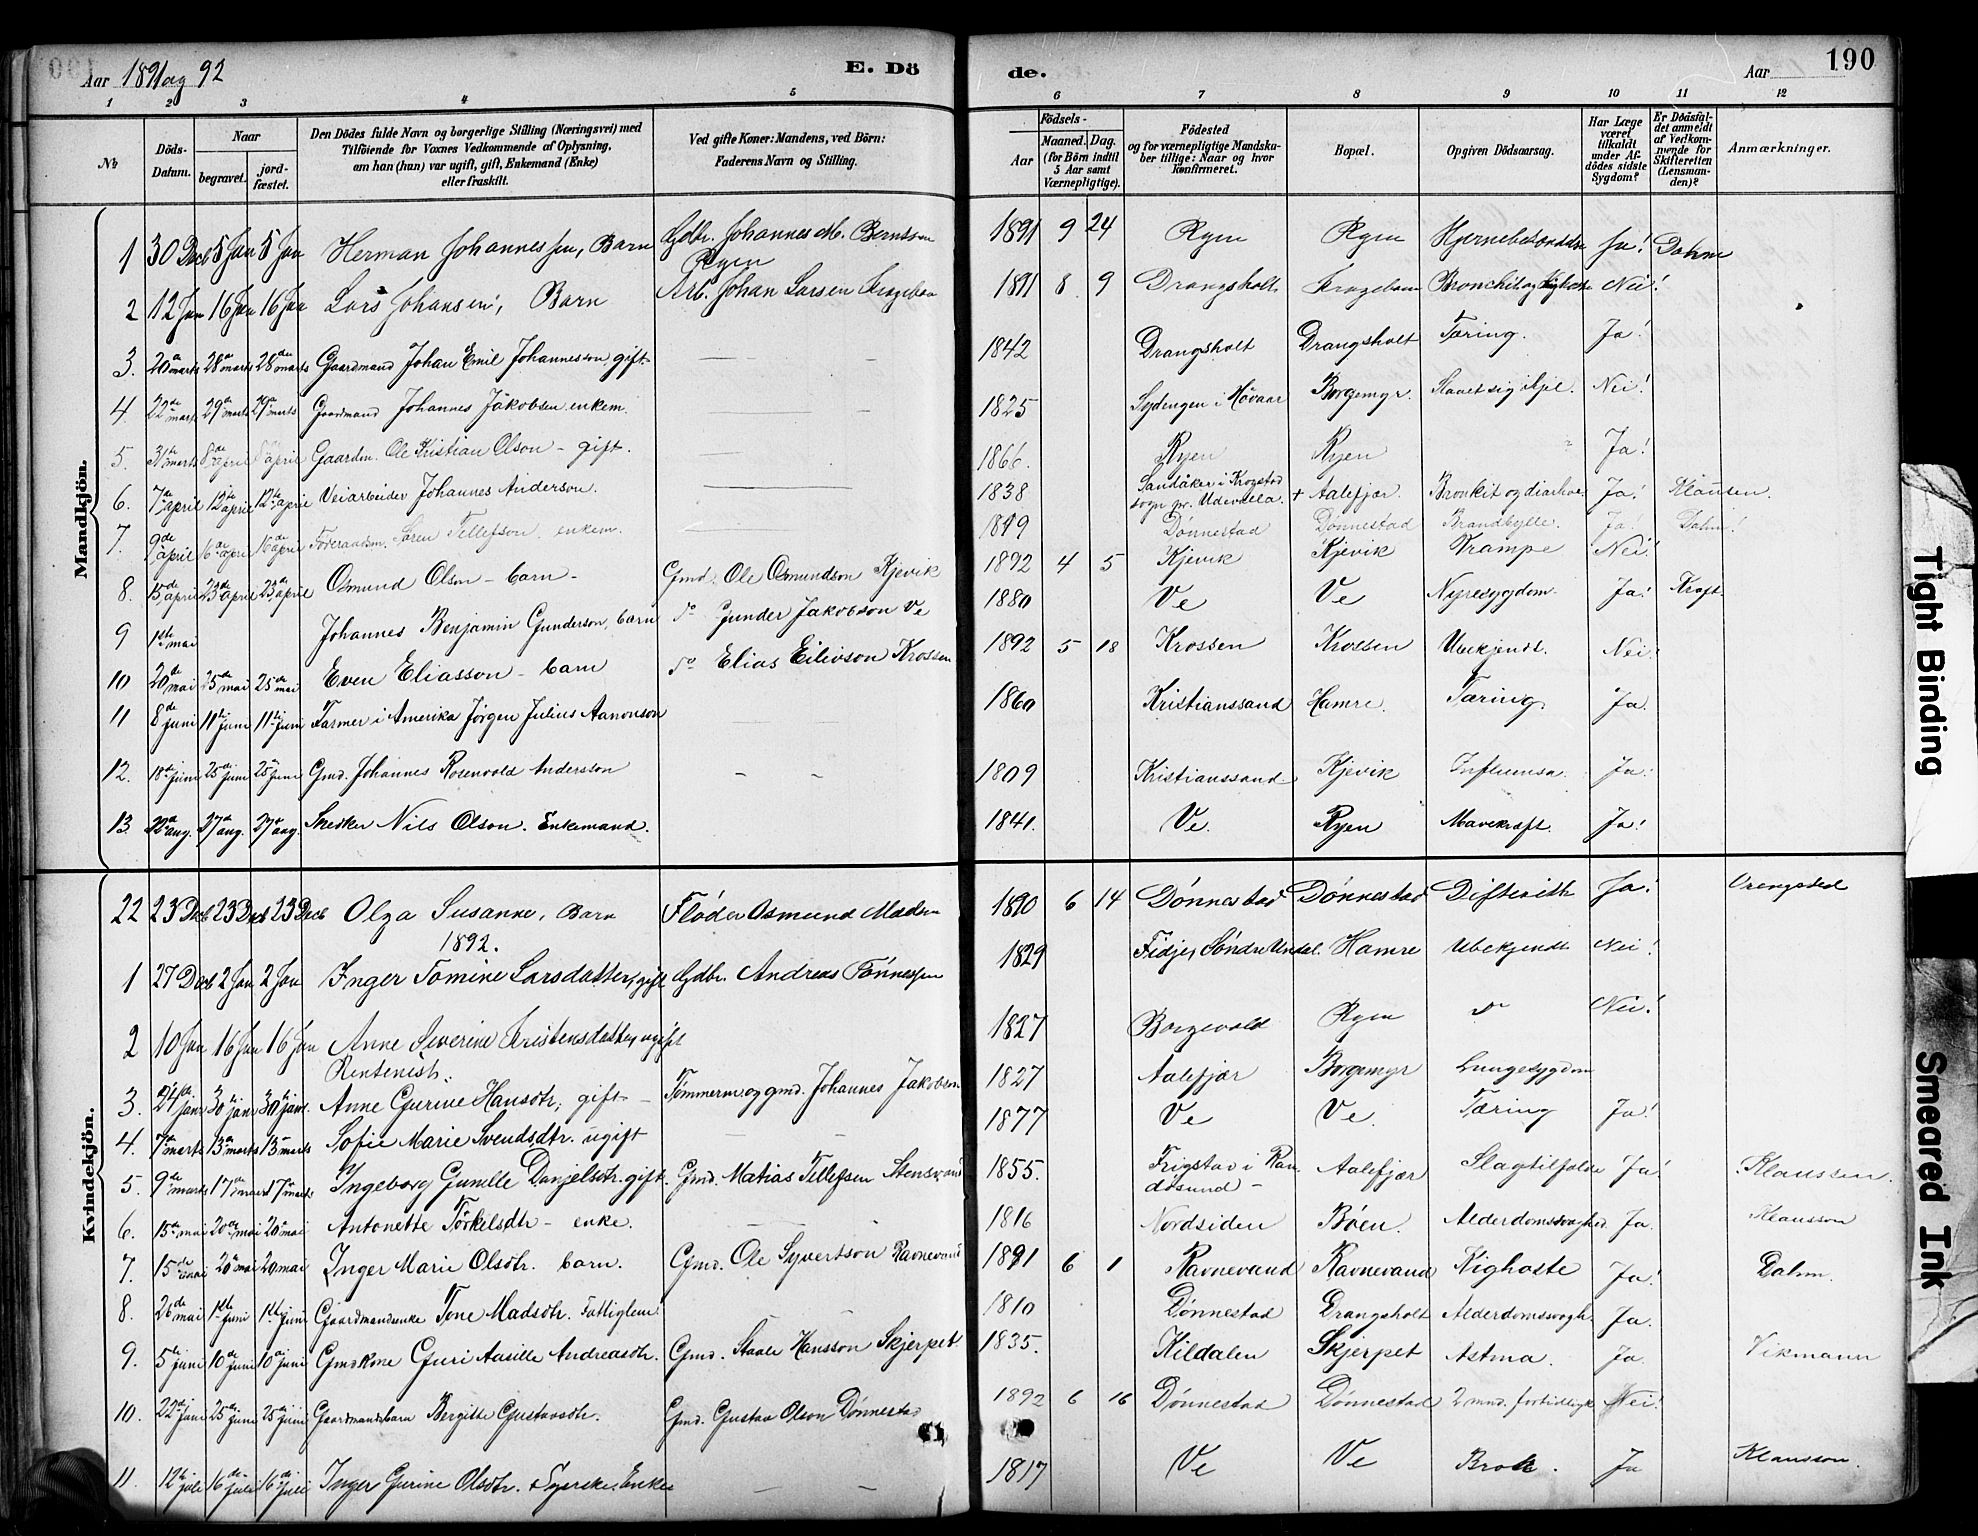 Aar 1891 og 92
E. Dö
de.
Aar
190
1 2 3 4 5 6 7 8 9 10 11 12
No
Döds-Datum.
Naar
begravet.
jord-fæstet.
Den Dödes fulde Navn og borgerlige Stilling (Næringsvei) med
Tilföiende for Voxnes Vedkommende af Oplysning,
om han (hun) var ugift, gift, Enkemand (Enke)
eller fraskilt.
Ved gifte Koner: Mandens, ved Börn:
Faderens Navn og Stilling.
Födsels-
Aar
Maaned. Dag.
(for Börn indtil
5 Aar samt
Værnepligtige).
Födested
og for værnepligtige Mandska-
ber tillige: Naar og hvor
konfirmeret.
Bopæl.
Opgiven Dödsaarsag.
Har Læge
været
tilkaldt
under Af-
dödes sidste
Sygdom?
Er Dödsfal-
det anmeldt
af Vedkom-
mende for
Skifteretten
(Lensman-
den)?
Anmærkninger.
Mandkjön.
1 30 Decb 5 Jan 5 Jan Herman Johannessen, Barn Gdbr. Johannes M. Berntsen Ryen 1891 9 24 Ryen Ryen Ja! Dahm
2 12 Jan 16 Jan 16 Jan Lars Johansen, Barn Arb. Johan Larsen 1891 8 9 Drangsholt Bronchit og Kighoste Nei!
3. 20de marts 28de marts 28de marts Gaardmand Johan Emil Johannesson, gift — — 1842 Drangsholt Drangsholt Tæring. Ja!
4. 22de marts 29de marts 29de marts Gaardmand Johannes Jakobsen enkem. 1825 Sydengen i Høvaag Borgemyr. Slaaet sig ihjel. Nei!
5. 31te marts 8de april 8de april Gaardm. Ole Kristian Olson – gift. 1866. Ryen Ryen Ja!
6. 7de april 12te april 12te april Veiarbeider Johannes Anderson. 1838 Sandåker i Krogstad sogn pr. Udevalla. + Aalefjær. Bronkit og diarhoe Ja! Klausen.
7. 9de april 16de april 16de april Føderaadsm. Søren Tellefson, enkem. 1819 Dønnestad Dønnestad Brandbylle. Ja! Dahm!
8. 15de april 23de april 23de april Osmund Olson – barn – Gmd. Ole Osmundson Kjevik 1892 4 5 Kjevik Kjevik Krampe Nei!
9 1ste mai Johannes Benjamin Gunderson, barn do Gunder Jakobson Ve 1880 Ve Ve Nyresygdom. Ja! Kraft
10 20de mai 25de mai 25de mai Even Eliasson – barn do Elias Eilivson Krossen 1892 5 18 Krossen Krossen Ubekjendt. Nei!
11 8de juni 11te juni 11te juni Farmer i Amerika Jørgen Julius Aanonson 1860 Kristianssand Hamre. Tæring. Ja.
12. 18de juni 25de juni 25de juni Gmd. Johannes Rosenvold Andersson – – 1809 Kristianssand Kjevik Influensa. Ja!
13. 22de aug. 27de aug. 27de aug. Snedker Nils Olson. Enkemand. 1841. Ve. Ryen Mavekræft. Ja!
Kvindekjön.
22 23 Decb 23 Decb 23 Decb Olga Susanne, Barn Fløder Osmund Madsen 1890 6 14 Dønnestad Dønnestad Difterith Ja!
1892.
1 27 Decb 2 Jan 2 Jan Inger Tomine Larsdatter, gift Gdbr. Andreas Tønnessen 1829 Fidje, Søndre Undal. Hamre Ubekjendt Nei!
2 10 Jan 16 Jan 16 Jan Anne Severine Kristensdatter, ugift 1827 Borgevold Ryen do Nei!
3. 24de jan 30te jan 30te jan. Anne Gurine Hansdtr, gift – Tømmerm. og gmd. Johannes Jakobson 1827 Aalefjær Borgemyr Lungesygdom
4. 7de marts 13de marts 13 marts Sofie Marie Svendsdtr. ugift 1877 Ve Ve. Tæring Ja!
5. 9de marts 17de marts 17 marts Ingeborg Gunille Danjelsdtr. gift. Gmd. Matias Tellefsen Stensvand 1855. Frigstad i Randøsund – Aalefjær Slagtilfælde Ja! Klaussen.
6. 15de mai 20de mai 20de mai Antonette Tørkelsdtr – enke. 1816 Nordsiden Bøen. Alderdomssvaghed. Ja. Klausson
7. 15de mai 20de mai 20 mai Inger Marie Olsdtr. barn. Gmd. Ole Syvertsson Ravnevand 1891 6 1 Ravnevand Ravnevand Kighoste Ja! Dahm.
8. 26de mai 1ste juni 1ste juni Gaardmandsenke Tone Madsdtr. Fattiglem. 1810 Dønnestad Drangsholt Alderdomssvagh. Ja.
9. 5te juni 10de juni 10de juni Gmdkone Guri Aasille Andreasdtr. Gmd. Staale Hansson Skjerpet 1835. Kildalen Skjerpet Astma. Ja. Vikmann
10. 22de juni 25de juni 25de juni Gaardmandsbarn Bergitte Gustavsdtr. Gmd. Gustav Olson Dønnestad 1892 6 16 Dønnestad Dønnestad 2 mnd. fortidligt Nei!
11. 12te juli 16de juli 16de juli Inger Gurine Olsdtr. Enke – – 1817 Ve Ve Brok. Ja Klausson.
Tight Binding
Smeared Ink